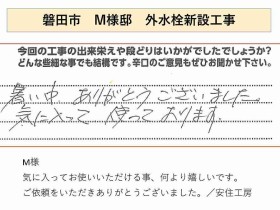 磐田市　M様邸　外水栓新設工事
今回の工事の出来栄えや段どりはいかがでしたでしょうか？
どんな些細な事でも結構です。辛口のご意見もぜひお聞かせ下さい。
暑い中 ありがとうございました。
気に入って 使って おります。
M様
気に入ってお使いいただける事、何より嬉しいです。
ご依頼をいただきありがとうございました。／安住工房